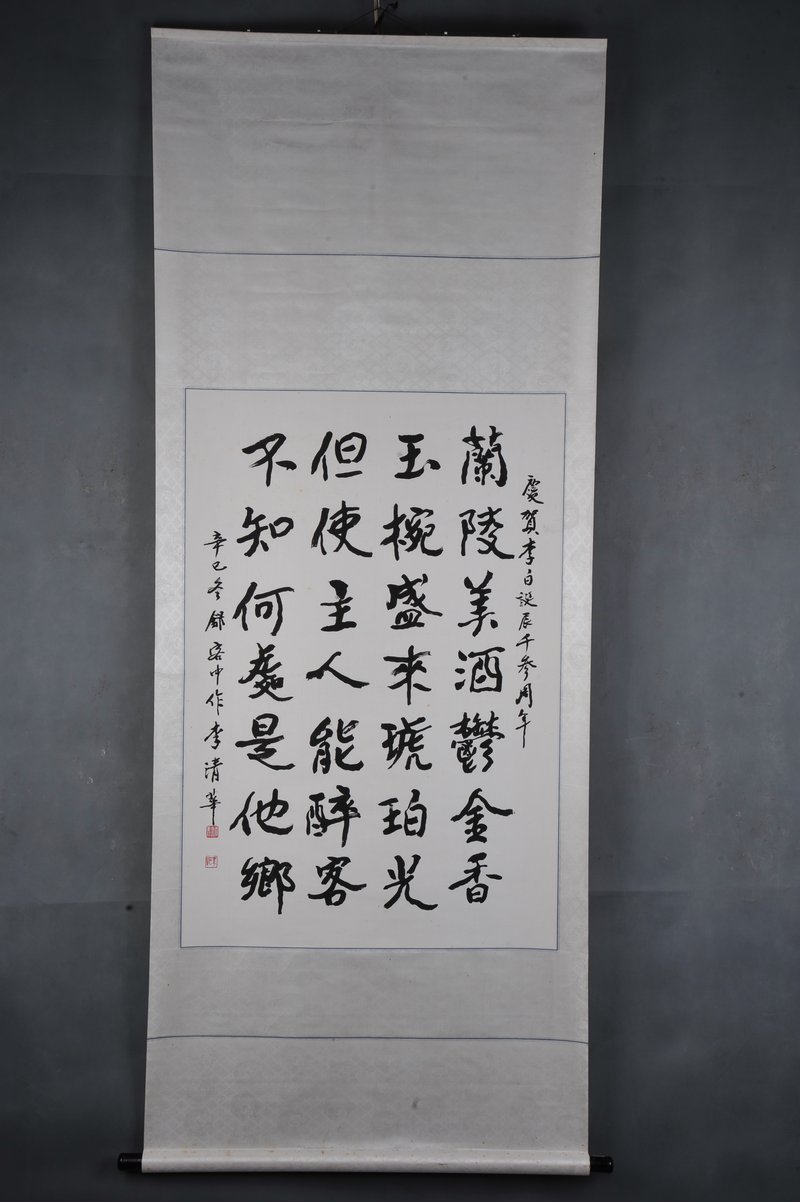 慶賀李白誕辰千叁周年
蘭陵美酒鬱金香
玉椀盛来琥珀光
但使主人能醉客
不知何處是他鄉
辛巳冬錄客中作李清華